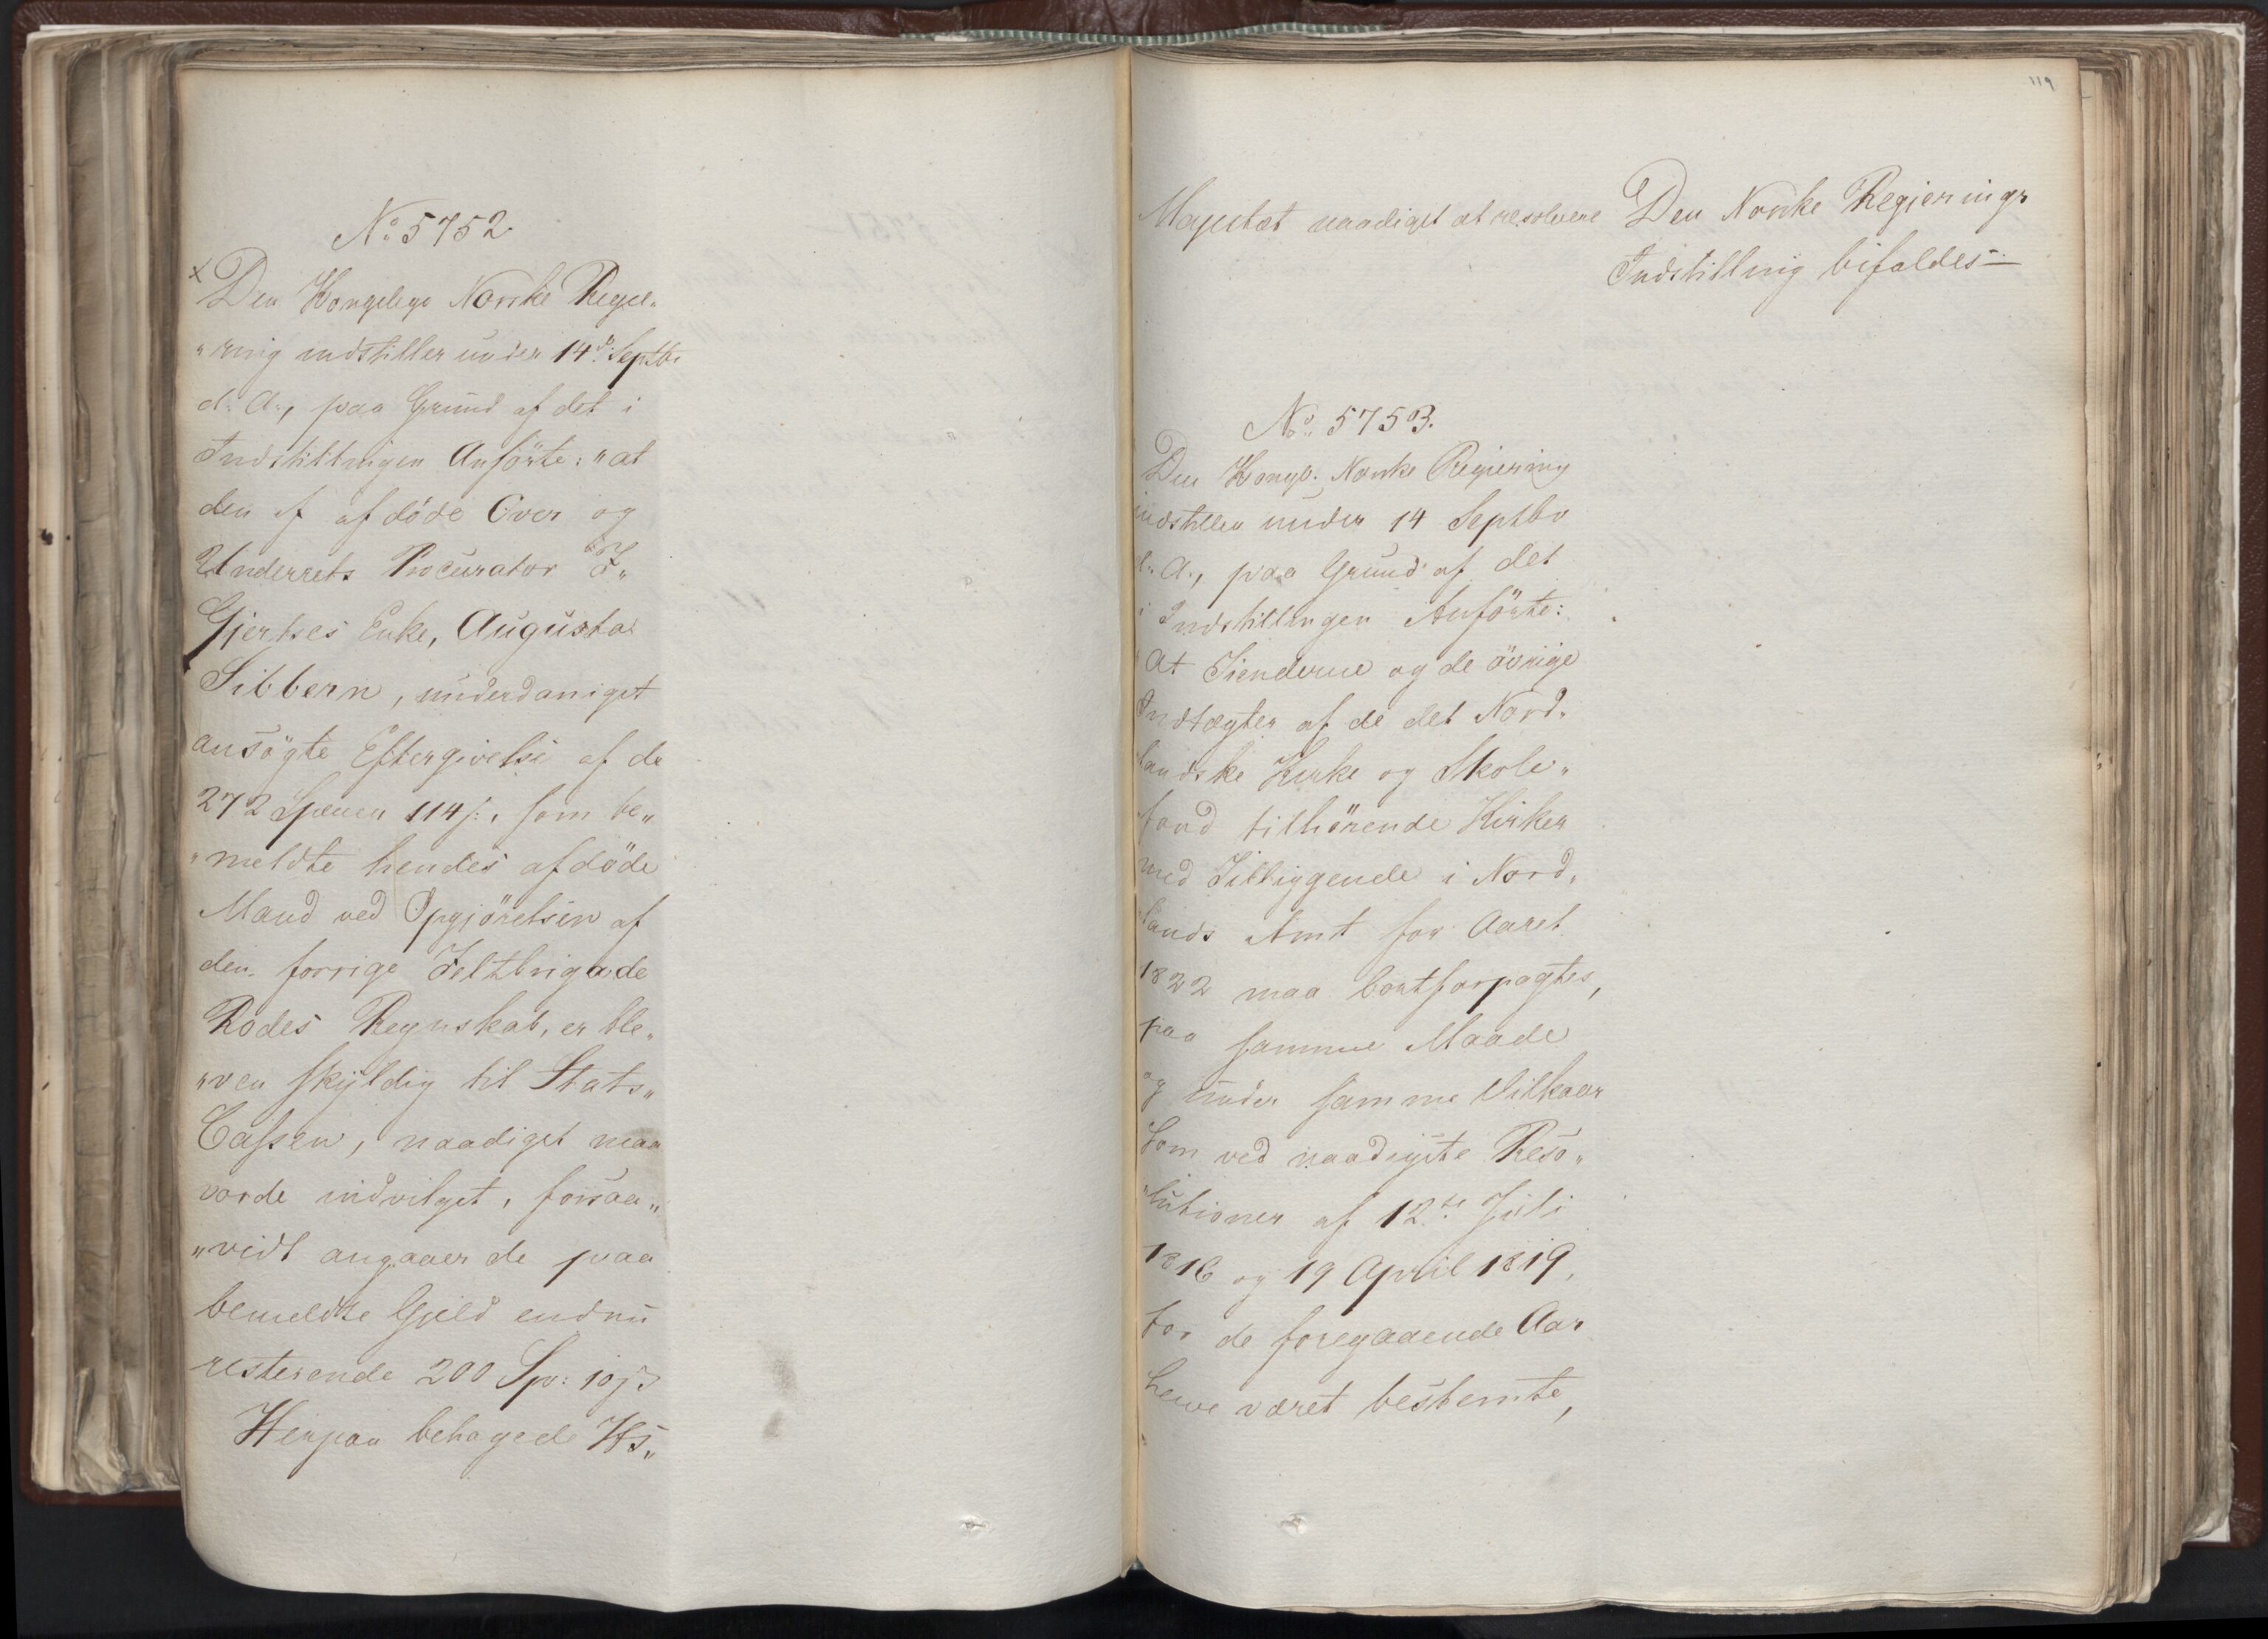 No 5752.
Den Kongelige Norske Regje„
„ring indstiller under 14de Septbr
d. A., paa Grund af det i
Indstillingen Anförte: "at
den af afdöde Over og
Underrets Procurator F„
Gjertses Enke, Augusta
Sibbern, underdanigst
ansögte Eftergivelse af de
272 Specier 114 s:, som be„
„meldte hendes afdöde
Mand ved Opgjörelsen af
den forrige Feltbrigade
Rodes Regnskab, er ble„
„ven skyldig til Stats„
Cassen, naadigst maa
vorde indvilget, forsaa„
„vidt angaaer de paa
bemeldte Gjeld endnu
resterende 200 Spr: 10 s
Herpaa behagede Hs„
119
Majestæt naadigst at resolvere
Den Norske Regjerings
Indstilling bifaldes
No. 5753.
Den Kongl. Norske Regiering
indstiller under 14 Septbr
d. A., paa Grund af det
i Indstillingen Anförte:
"At Tienderne og de övrige
Indtægter af de det Nord„
landske Kirke og Skole„
fond tilhörende Kirker
med Tilliggende i Nord„
lands Amt for Aaret
1822 maa bortforpagtes,
paa samme Maade
og under samme Vilkaar
som ved naadigste Reso„
„lutioner af 12te Juli
1816 og 19 April 1819,
for de foregaaende Aar
have været bestemte,